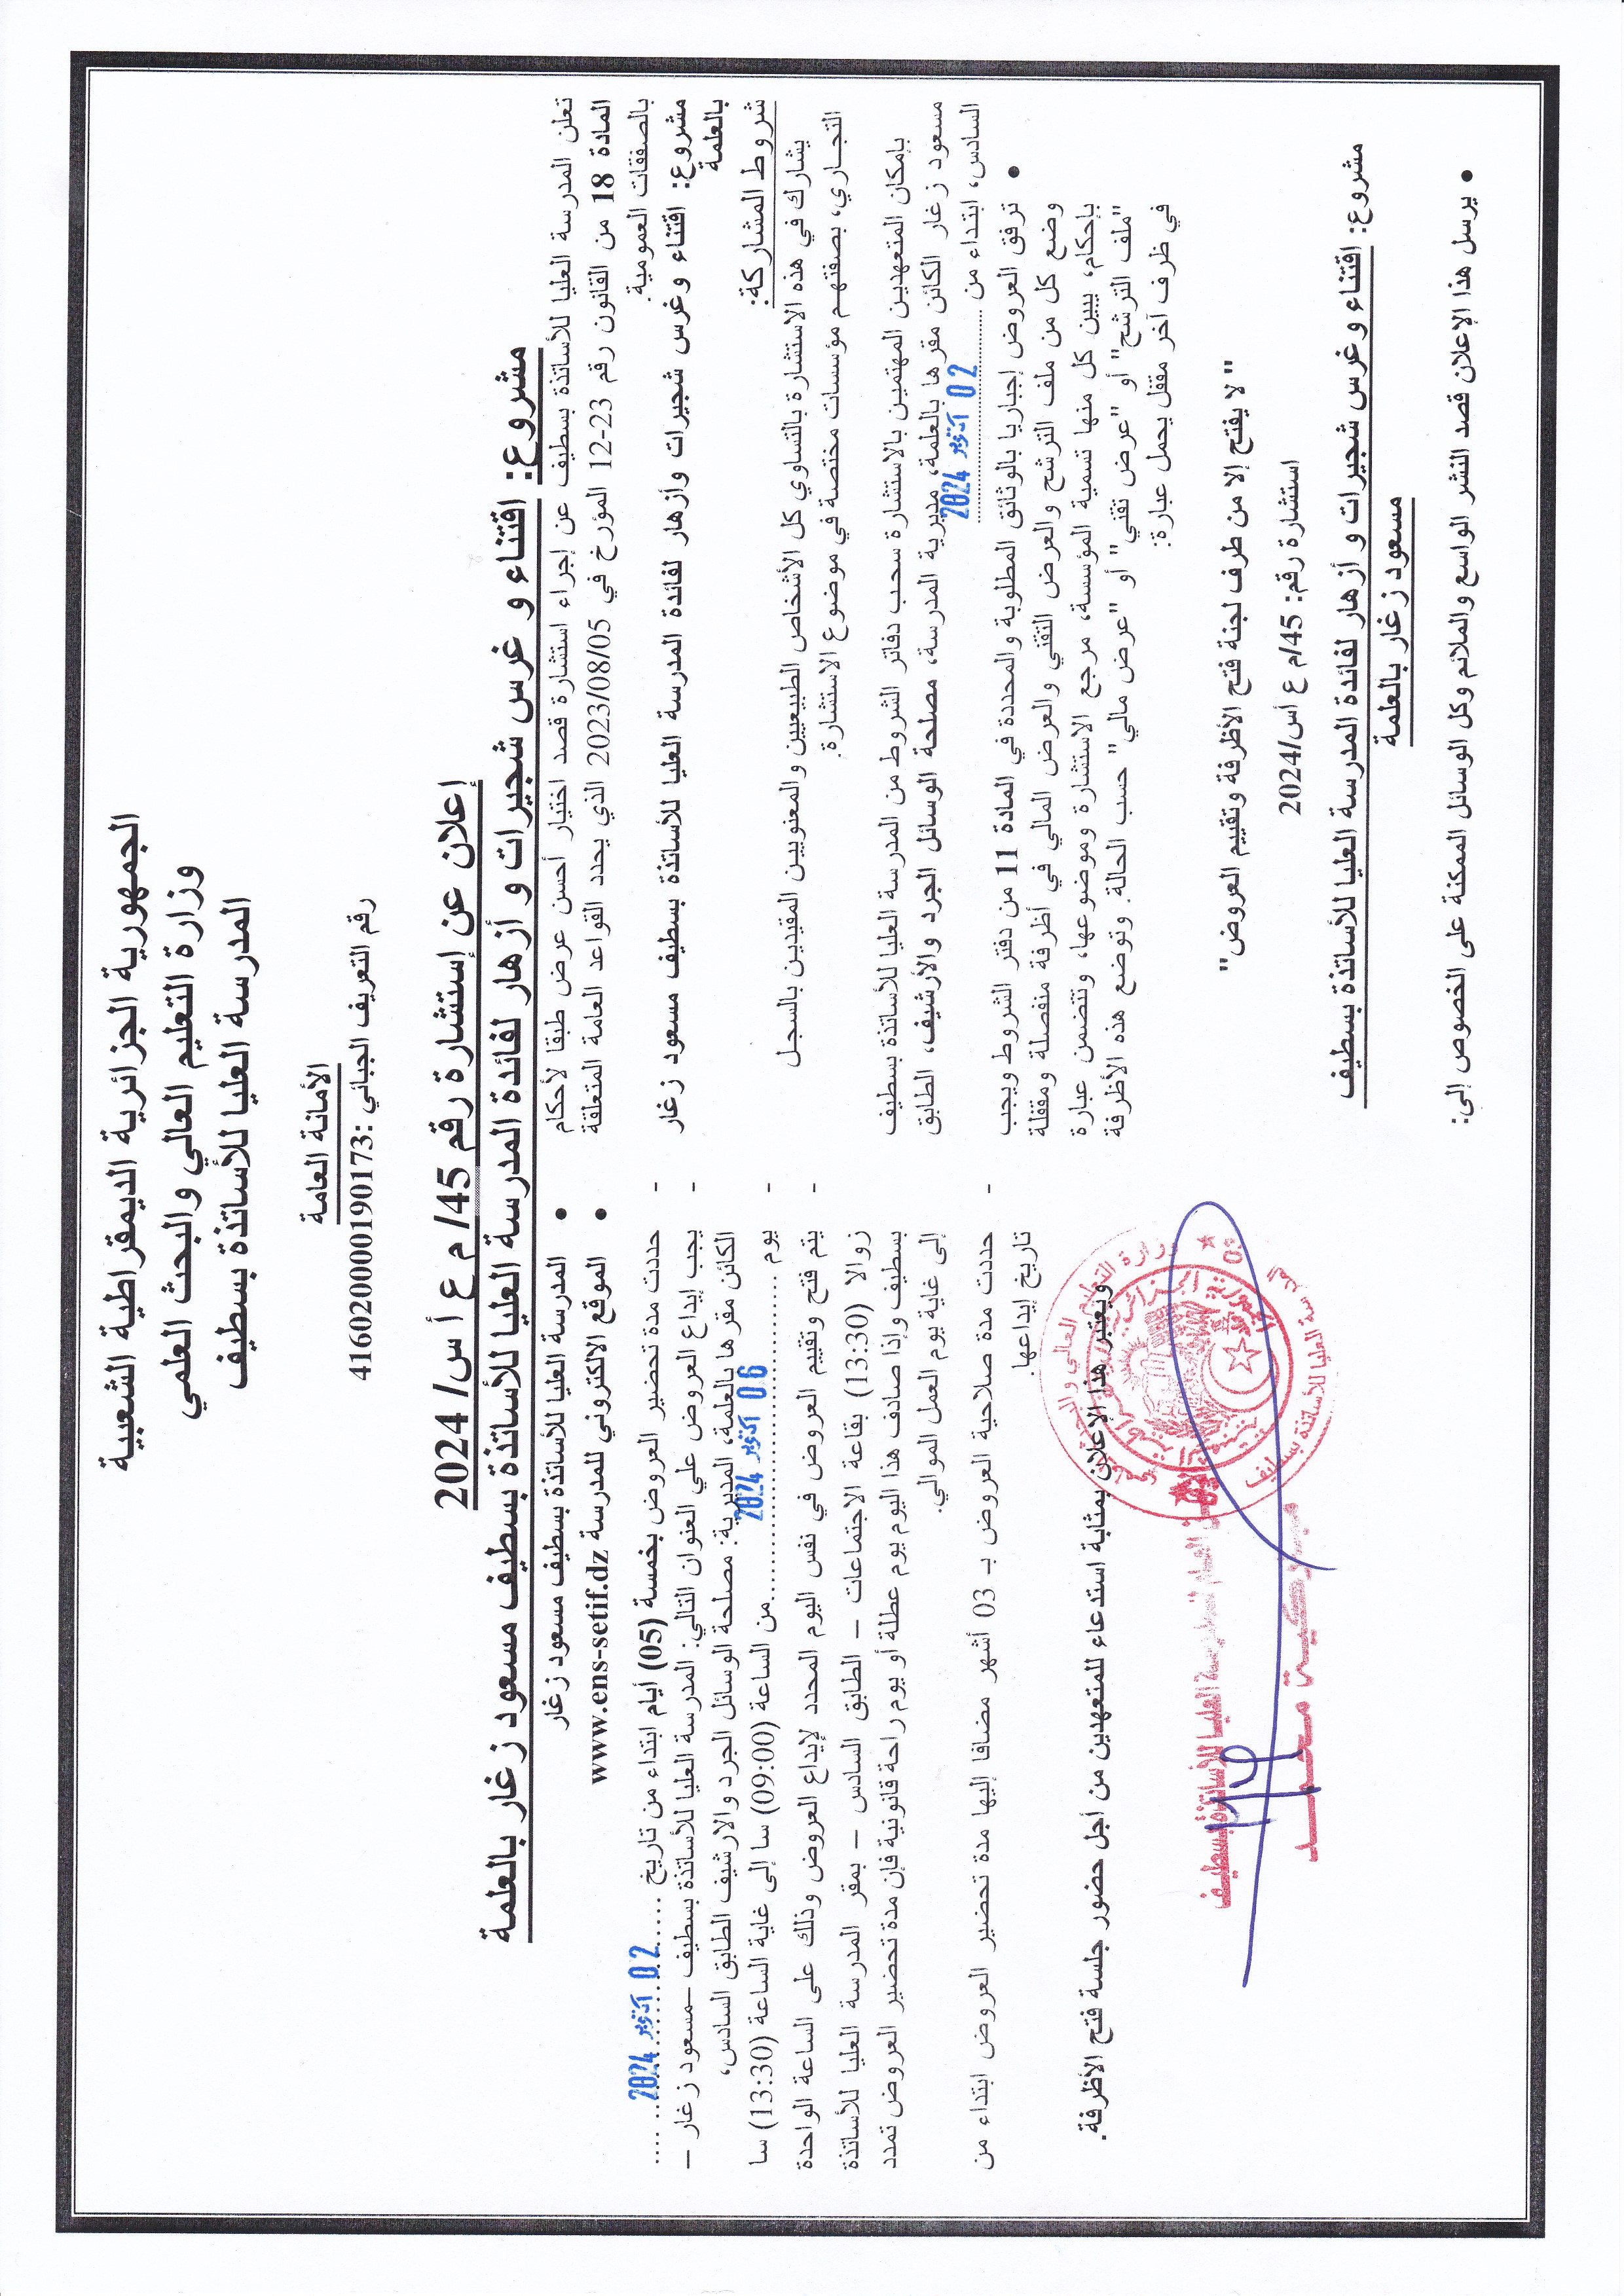 الجمهورية الجزائرية الديمقراطية الشعبية
وزارة التعليم العالي والبحث العلمي
المدرسة العليا للأساتذة بسطيف
الأمانة العامة
رقم التعريف الجبائي :416020000190173
إعلان عن إستشارة رقم 45/ م ع أ س/ 2024
مشروع: اقتناء و غرس شجيرات و أزهار لفائدة المدرسة العليا للأساتذة بسطيف مسعود زغار بالعلمة
تعلن المدرسة العليا للأساتذة بسطيف عن إجراء استشارة قصد اختيار أحسن عرض طبقا لأحكام
المادة 18 من القانون رقم 23-12 المؤرخ في 2023/08/05 الذي يحدد القواعد العامة المتعلقة
بالصفقات العمومية.
مشروع: اقتناء و غرس شجيرات وأزهار لفائدة المدرسة العليا للأساتذة بسطيف مسعود زغار
بالعلمة
شروط المشاركة:
يشارك في هذه الاستشارة بالتساوي كل الأشخاص الطبيعيين والمعنويين المقيدين بالسجل
التجاري، بصفتهم مؤسسات مختصة في موضوع الاستشارة.
بإمكان المتعهدين المهتمين بالاستشارة سحب دفاتر الشروط من المدرسة العليا للأساتذة بسطيف
مسعود زغار الكائن مقرها بالعلمة، مديرية المدرسة، مصلحة الوسائل الجرد والأرشيف، الطابق
السادس، ابتداء من 02 أكتوبر 2024
• ترفق العروض إجباريا بالوثائق المطلوبة والمحددة في المادة 11 من دفتر الشروط ويجب
وضع كل من ملف الترشح والعرض التقني والعرض المالي في أظرفة منفصلة ومقفلة
بإحكام، يبين كل منها تسمية المؤسسة، مرجع الاستشارة وموضوعها، وتتضمن عبارة
"ملف الترشح" أو "عرض تقني" أو "عرض مالي" حسب الحالة. وتوضع هذه الأظرفة
في ظرف آخر مقفل يحمل عبارة:
" لا يفتح إلا من طرف لجنة فتح الأظرفة وتقييم العروض"
استشارة رقم: 45/م ع أس/2024
مشروع: اقتناء و غرس شجيرات و أزهار لفائدة المدرسة العليا للأساتذة بسطيف
مسعود زغار بالعلمة
• يرسل هذا الإعلان قصد النشر الواسع والملائم وكل الوسائل الممكنة على الخصوص إلى:
• المدرسة العليا للأساتذة بسطيف مسعود زغار
• الموقع الالكتروني للمدرسة www.ens-setif.dz
- حددت مدة تحضير العروض بخمسة (05) أيام ابتداء من تاريخ 02 أكتوبر 2024
- يجب إيداع العروض علي العنوان التالي: المدرسة العليا للأساتذة بسطيف –مسعود زغار –
الكائن مقرها بالعلمة، المديرية: مصلحة الوسائل الجرد والارشيف الطابق السادس،
- يوم 06 أكتوبر 2024 من الساعة (09:00) سا إلى غاية الساعة (13:30) سا
- يتم فتح وتقييم العروض في نفس اليوم المحدد لإيداع العروض وذلك على الساعة الواحدة
زوالا (13:30) بقاعة الاجتماعات – الطابق السادس – بمقر المدرسة العليا للأساتذة
بسطيف وإذا صادف هذا اليوم يوم عطلة أو يوم راحة قانونية فإن مدة تحضير العروض تمدد
إلى غاية يوم العمل الموالي.
- حددت مدة صلاحية العروض بـ 03 أشهر مضافا إليها مدة تحضير العروض ابتداء من
تاريخ إيداعها.
ويعتبر هذا الإعلان بمثابة استدعاء للمتعهدين من أجل حضور جلسة فتح الأظرفة.